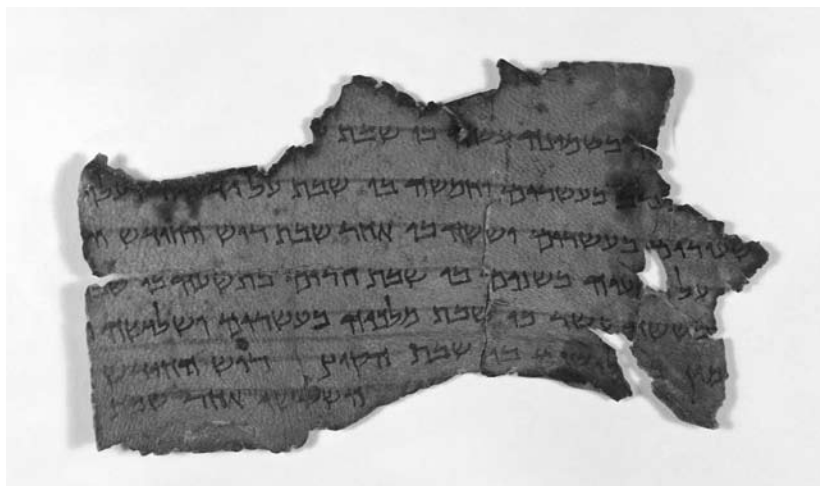 בשמונה עשר בו שבת
בעשרים וחמשה בו שבת על
שעורים בעשרים וששה בו אחר שבת רוש החודש
על ידעיה בשנים בו שבת חרים בתשעה בו
בששה עשר בו שבת מלכיה בעשרים ושלושה
בו שבת הקוץ רוש החודש
השלישי אחר שבת